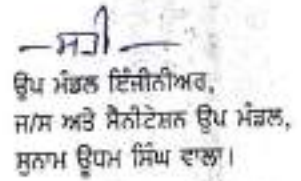 —ਸਹੀ—
ਉਪ ਮੰਡਲ ਇੰਜੀਨੀਅਰ,
ਜ/ਸ ਅਤੇ ਸੈਨੀਟੇਸ਼ਨ ਉਪ ਮੰਡਲ,
ਸੁਨਾਮ ਊਧਮ ਸਿੰਘ ਵਾਲਾ।